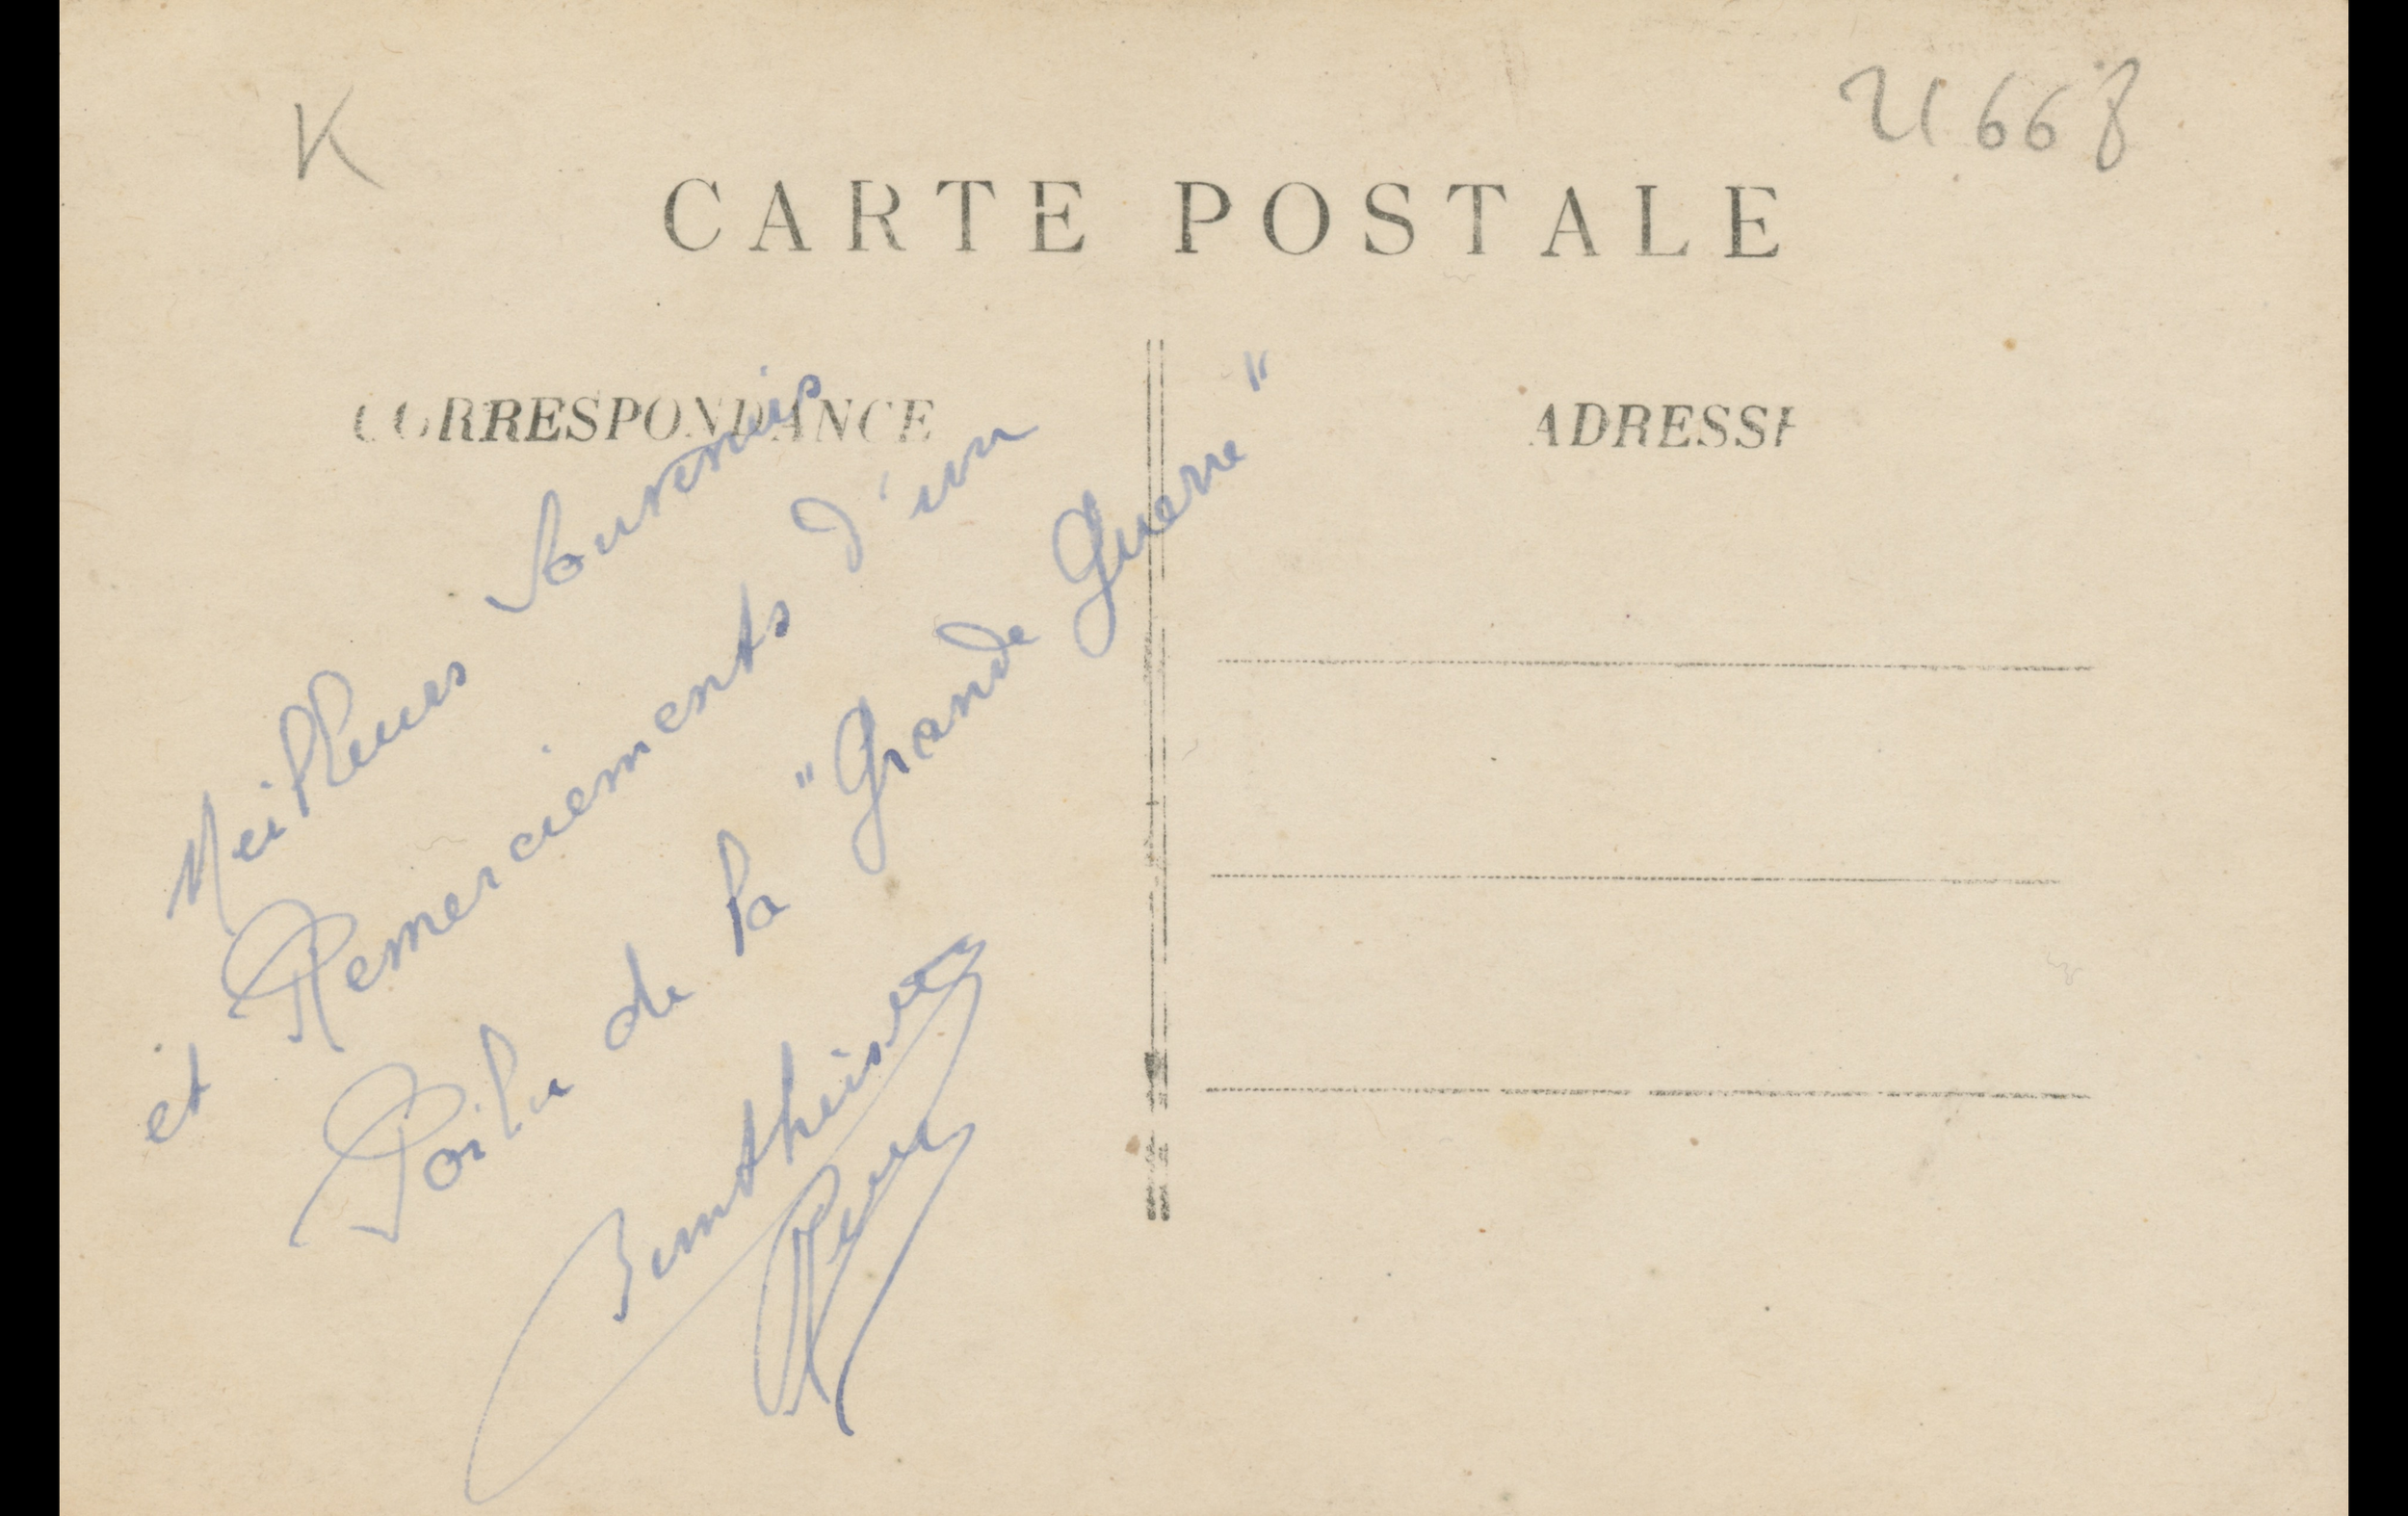 K
21668
CARTE POSTALE
CORRESPONDANCE
ADRESSE
Meilleurs Souvenirs
et Remerciements d'un
Poilu de la "Grande Guerre"